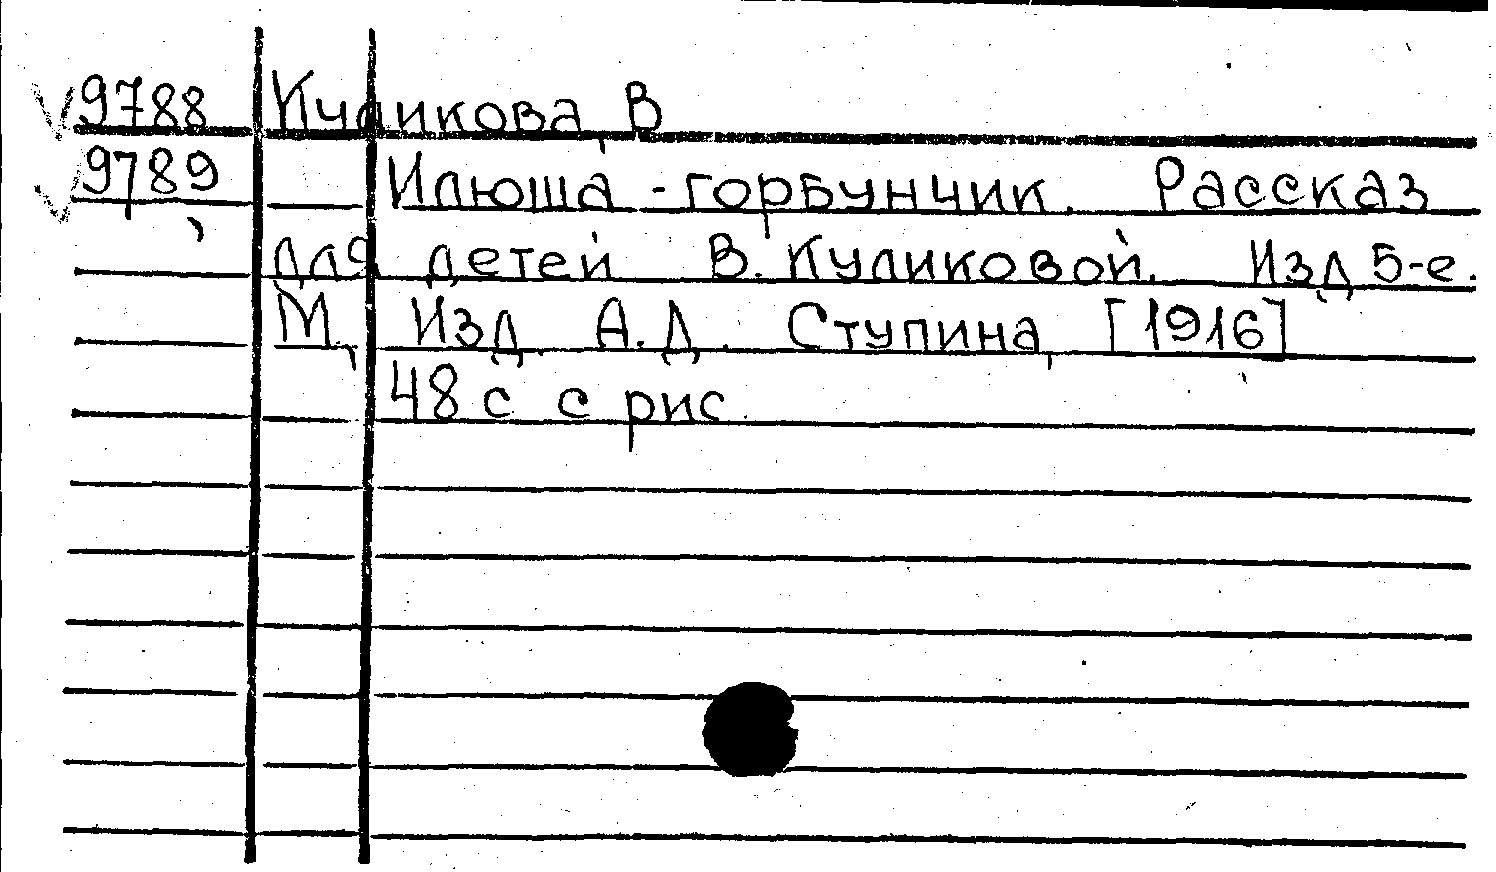 9788 Куликова, В
9789 Илюша-горбунчик. Рассказ
для детей В. Куликовой. Изд 5-е.
М., Изд. А.Д. Ступина, [1916]
48 с с рис.